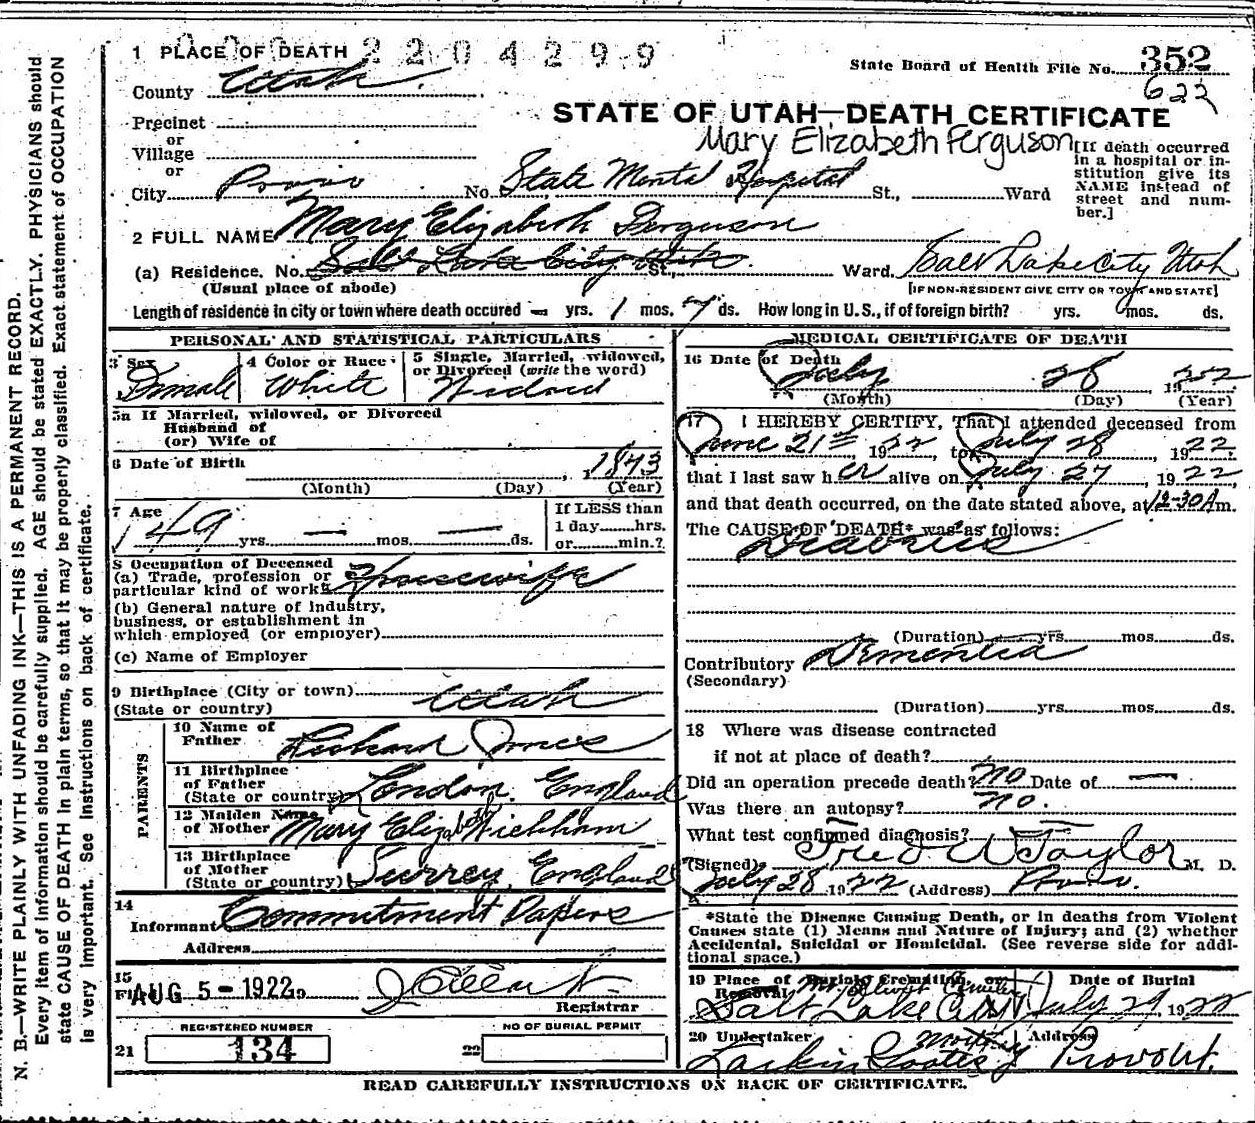 1 PLACE OF DEATH 2204299
State Board of Health File No. 352
622
County Utah
STATE OF UTAH—DEATH CERTIFICATE
Precinct
or
Village
or
Mary Elizabeth Ferguson
[If death occurred in a hospital or institution give its NAME instead of street and number.]
City Provo No. State Mental Hospital St., Ward
2 FULL NAME Mary Elizabeth Ferguson
(a) Residence. No. Salt Lake City Utah St., Ward. Salt Lake City Utah
(Usual place of abode)
[IF NON-RESIDENT GIVE CITY OR TOWN AND STATE]
Length of residence in city or town where death occured — yrs. 1 mos. 7 ds. How long in U.S., if of foreign birth? yrs. mos. ds.
PERSONAL AND STATISTICAL PARTICULARS
3 Sex Female
4 Color or Race White
5 Single, Married, widowed, or Divorced (write the word) Widow
5a If Married, widowed, or Divorced
Husband of
(or) Wife of
6 Date of Birth , 1843
(Month) (Day) (Year)
7 Age 49 yrs. — mos. — ds.
If LESS than
1 day hrs.
or min.?
8 Occupation of Deceased
(a) Trade, profession or
particular kind of work Housewife
(b) General nature of industry,
business, or establishment in
which employed (or employer)
(c) Name of Employer
9 Birthplace (City or town) Utah
(State or country)
PARENTS
10 Name of
Father Richard Jones
11 Birthplace
of Father
(State or country) London, England
12 Maiden Name
of Mother Mary Elizabeth Wickham
13 Birthplace
of Mother
(State or country) Surrey, England
14
Informant Commitment Papers
Address
15
Filed AUG 5 - 1922
Registrar
REGISTERED NUMBER
21 134
NO OF BURIAL PERMIT
22
MEDICAL CERTIFICATE OF DEATH
16 Date of Death July 28 1922
(Month) (Day) (Year)
17 I HEREBY CERTIFY, That I attended deceased from
June 21st, 1922, to July 28, 1922.
that I last saw her alive on July 27, 1922,
and that death occurred, on the date stated above, at 12-30 A m.
The CAUSE OF DEATH* was as follows:
Diabetes
(Duration) yrs. mos. ds.
Contributory Dementia
(Secondary)
(Duration) yrs. mos. ds.
18 Where was disease contracted
if not at place of death?
Did an operation precede death? No Date of —
Was there an autopsy? No.
What test confirmed diagnosis? —
(Signed) Fred W Taylor M. D.
July 28 1922 (Address) Provo.
*State the Disease Causing Death, or in deaths from Violent
Causes state (1) Means and Nature of Injury; and (2) whether
Accidental, Suicidal or Homicidal. (See reverse side for addi-
tional space.)
19 Place of Burial, Cremation, or Removal
Mt Olivet Cemetery
Salt Lake City
Date of Burial
July 29 1922
20 Undertaker
Mortuary
Address Provo Ut.
READ CAREFULLY INSTRUCTIONS ON BACK OF CERTIFICATE.
N. B.—WRITE PLAINLY WITH UNFADING INK—THIS IS A PERMANENT RECORD.
Every item of information should be carefully supplied. AGE should be stated EXACTLY. PHYSICIANS should
state CAUSE OF DEATH in plain terms, so that it may be properly classified. Exact statement of OCCUPATION
is very important. See instructions on back of certificate.